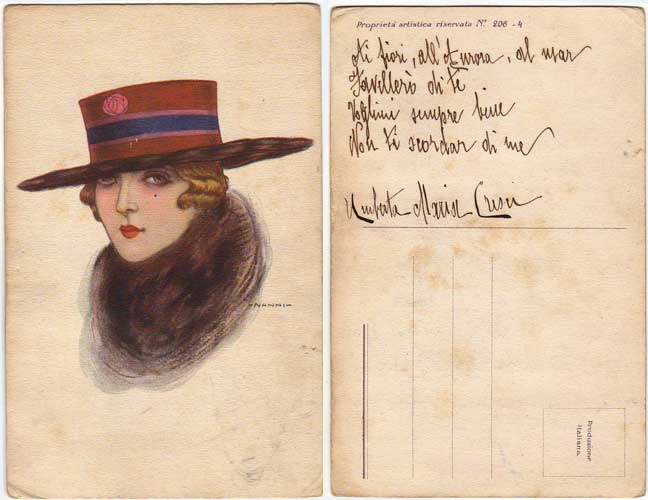 NANNI
Proprietà artistica riservata N.º 206 - 4
Ai fiori, all'Aurora, al mar
Favellerò di te
Vogliimi sempre bene
Non ti scordar di me
Umberta Maria Crisci
Produzione
Italiana.